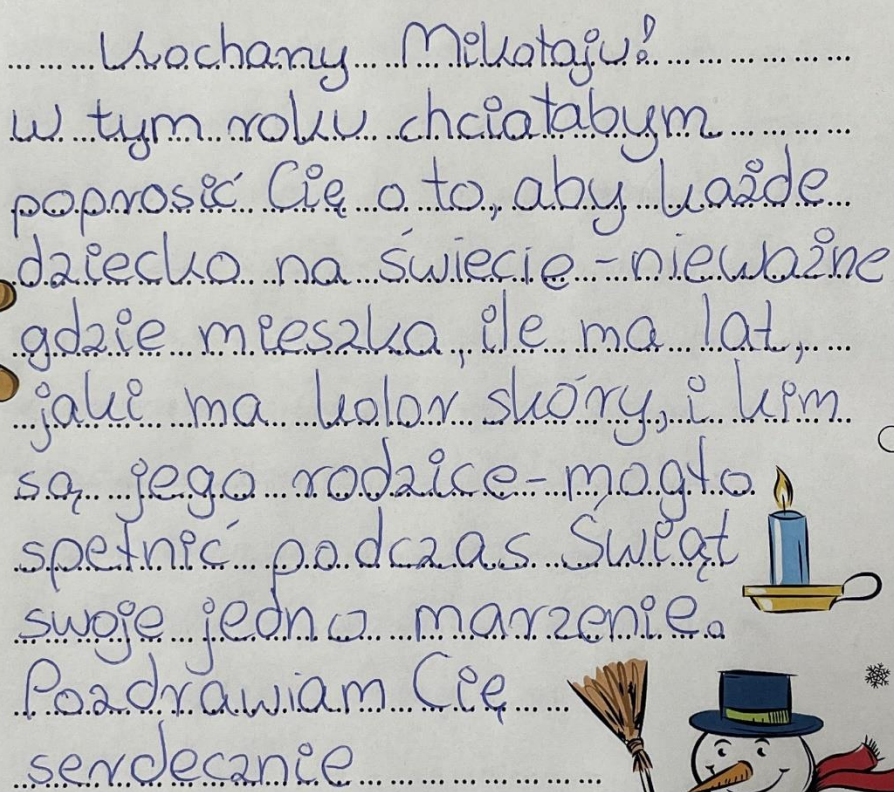 Kochany Mikołaju!
w tym roku chciałabym
poprosić Cię o to, aby każde
dziecko na świecie - nieważne
gdzie mieszka, ile ma lat,
jaki ma kolor skóry, i kim
są jego rodzice - mogło
spełnić podczas Świąt
swoje jedno marzenie.
Pozdrawiam Cię
serdecznie